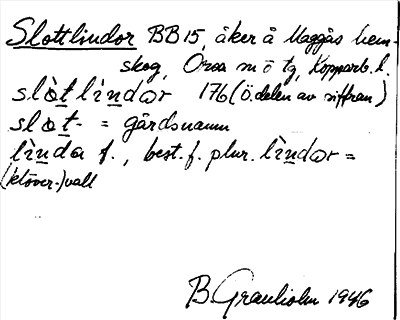 Slottlindor BB 15, åker å Maggås hem-
skog, Orsa sn ö tg, Kopparb. l.
slòt lìndar 176 (ö. delen av siffran)
slot = gårdsnamn
lìnda f., best. f. plur. lìndar =
(klöver-)vall
B. Granholm 1946